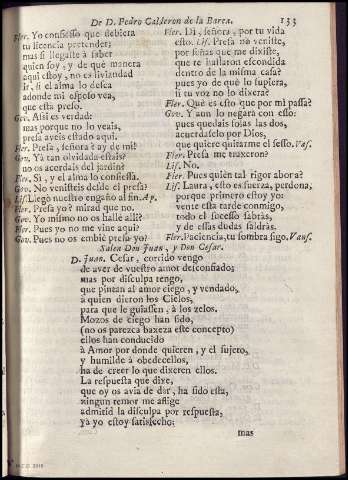 De D. Pedro Calderon de la Barca.
133
Fler. Yo confiesso que debiera
tu licencia pretender;
mas si llegaste à saber
quien soy, y de què manera
aqui estoy, no es liviandad
ir, si el alma lo desea
adonde mi esposo vea,
que està preso.
Gov. Assi es verdad:
mas porque no lo veais,
presa aveis estado aqui.
Fler. Presa, señora? ay de mi!
Gov. Yà tan olvidada estais?
no os acordais del jardin
Fler. Si, y el alma lo confiessa.
Gov. No venisteis desde èl presa?
Lis. Llegò nuestro engaño al fin. Ap.
Fler. Presa yo? mirad que no.
Gov. Yo mismo no os hallè alli?
Fler. Pues yo no me vine aqui?
Gov. Pues no os embiè presa yo?
Fler. Di, señora, por tu vida
esto. Lis. Presa no veniste,
por señas que me dixiste,
que te hallaron escondida
dentro de la misma casa?
pues yo de què lo supiera,
si tu voz no lo dixera?
Fler. Què es esto que por mi passa?
Gov. Y aun lo negarà con esto:
pues quedais solas las dos,
acuerdaselo por Dios,
que quiere quitarme el sesso. Vas.
Fler. Presa me traxeron?
Lis. No.
Fler. Pues quièn tal rigor abora?
Lis. Laura, esto es fuerza, perdona,
porque primero estoy yo:
vente esta tarde conmigo,
todo el sucesso sabràs,
y de essas dudas saldràs.
Fler. Paciencia, tu sombra sigo. Vans.
Salen Don Juan, y Don Cesar.
D. Juan. Cesar, corrido vengo
de aver de vuestro amor desconfiado;
mas por disculpa tengo,
que pintan al amor ciego, y vendado,
à quien dieron los Cielos,
para que le guiassen, à los zelos.
Mozos de ciego han sido,
(no os parezca baxeza este concepto)
ellos han conducido
à Amor por donde quieren, y èl sujeto,
y humilde à obedecellos,
ha de creer lo que dixeren ellos.
La respuesta que dixe,
que oy os avia de dàr, ha sido esta,
ningun temor me aflige
admitid la disculpa por respuesta,
yà yo estoy satisfecho;
mas